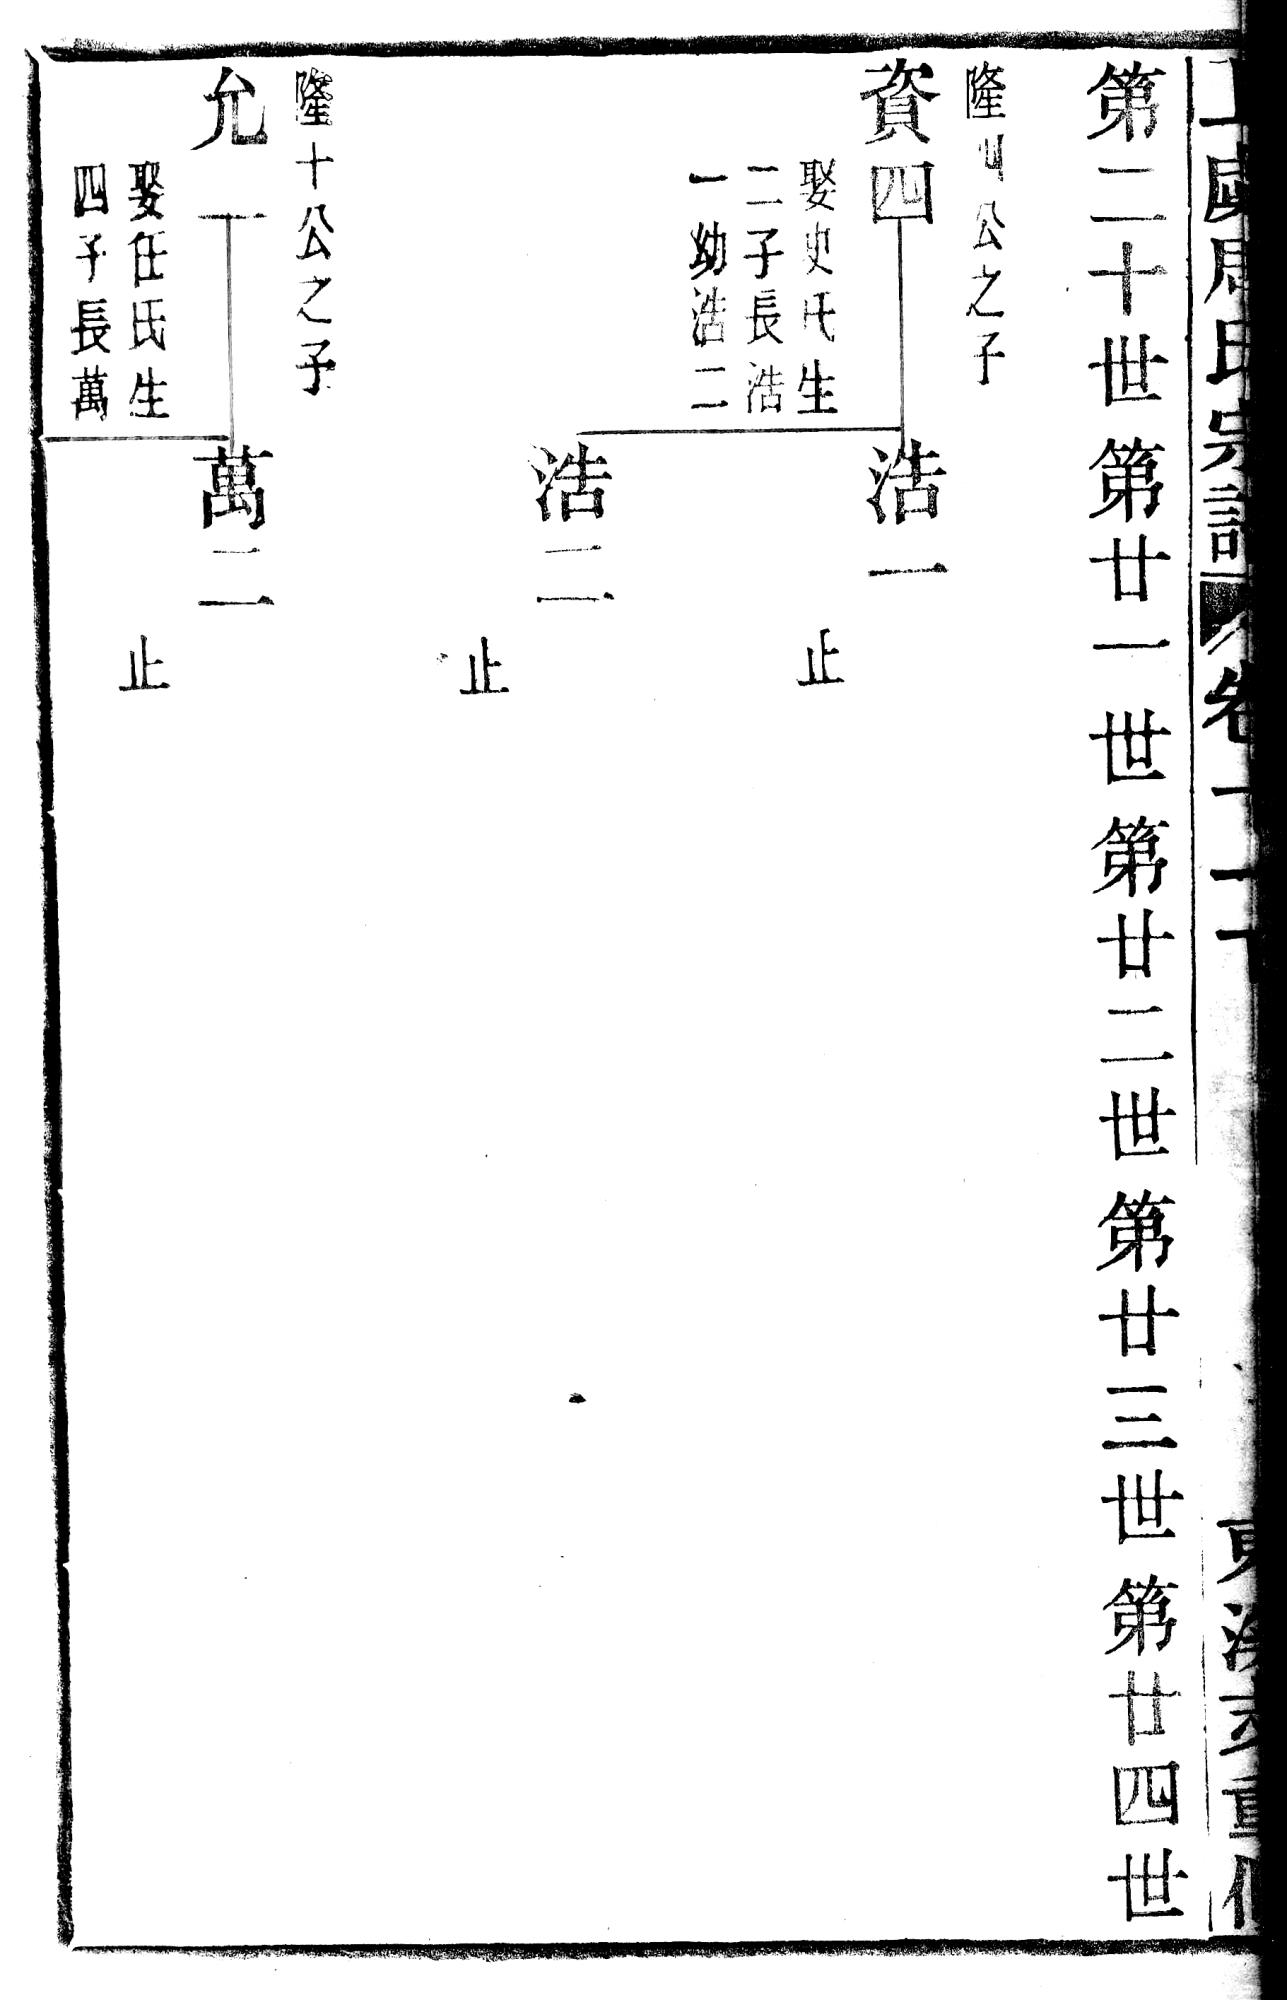 第二十世 第廿一世 第廿二世 第廿三世 第廿四世
隆
公之子
資四
娶史氏生
二子長浩
一幼浩二
浩一
止
浩二
止
隆十公之子
允一
娶任氏生
四子長萬
萬二
止